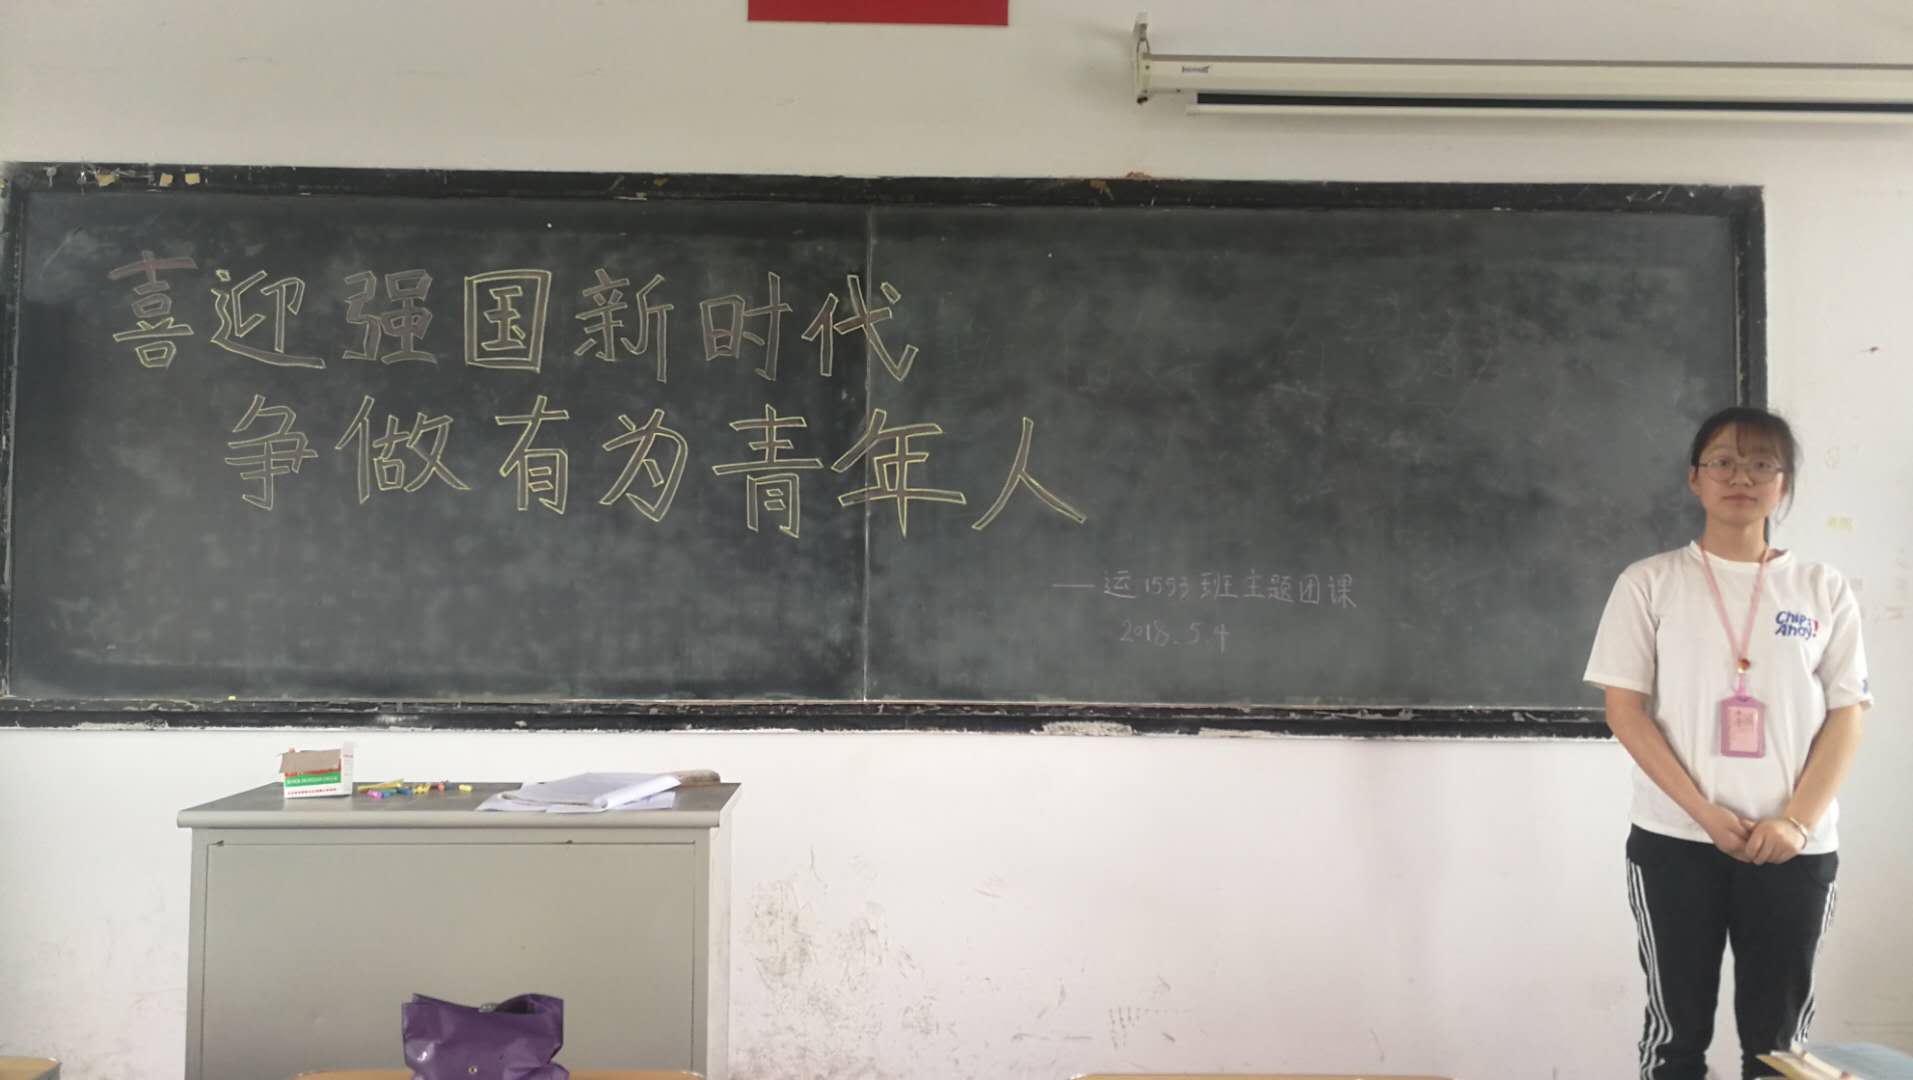 喜迎强国新时代
争做有为青年人
——运1553班主题团课
2018.5.4
Chips
Ahoy!